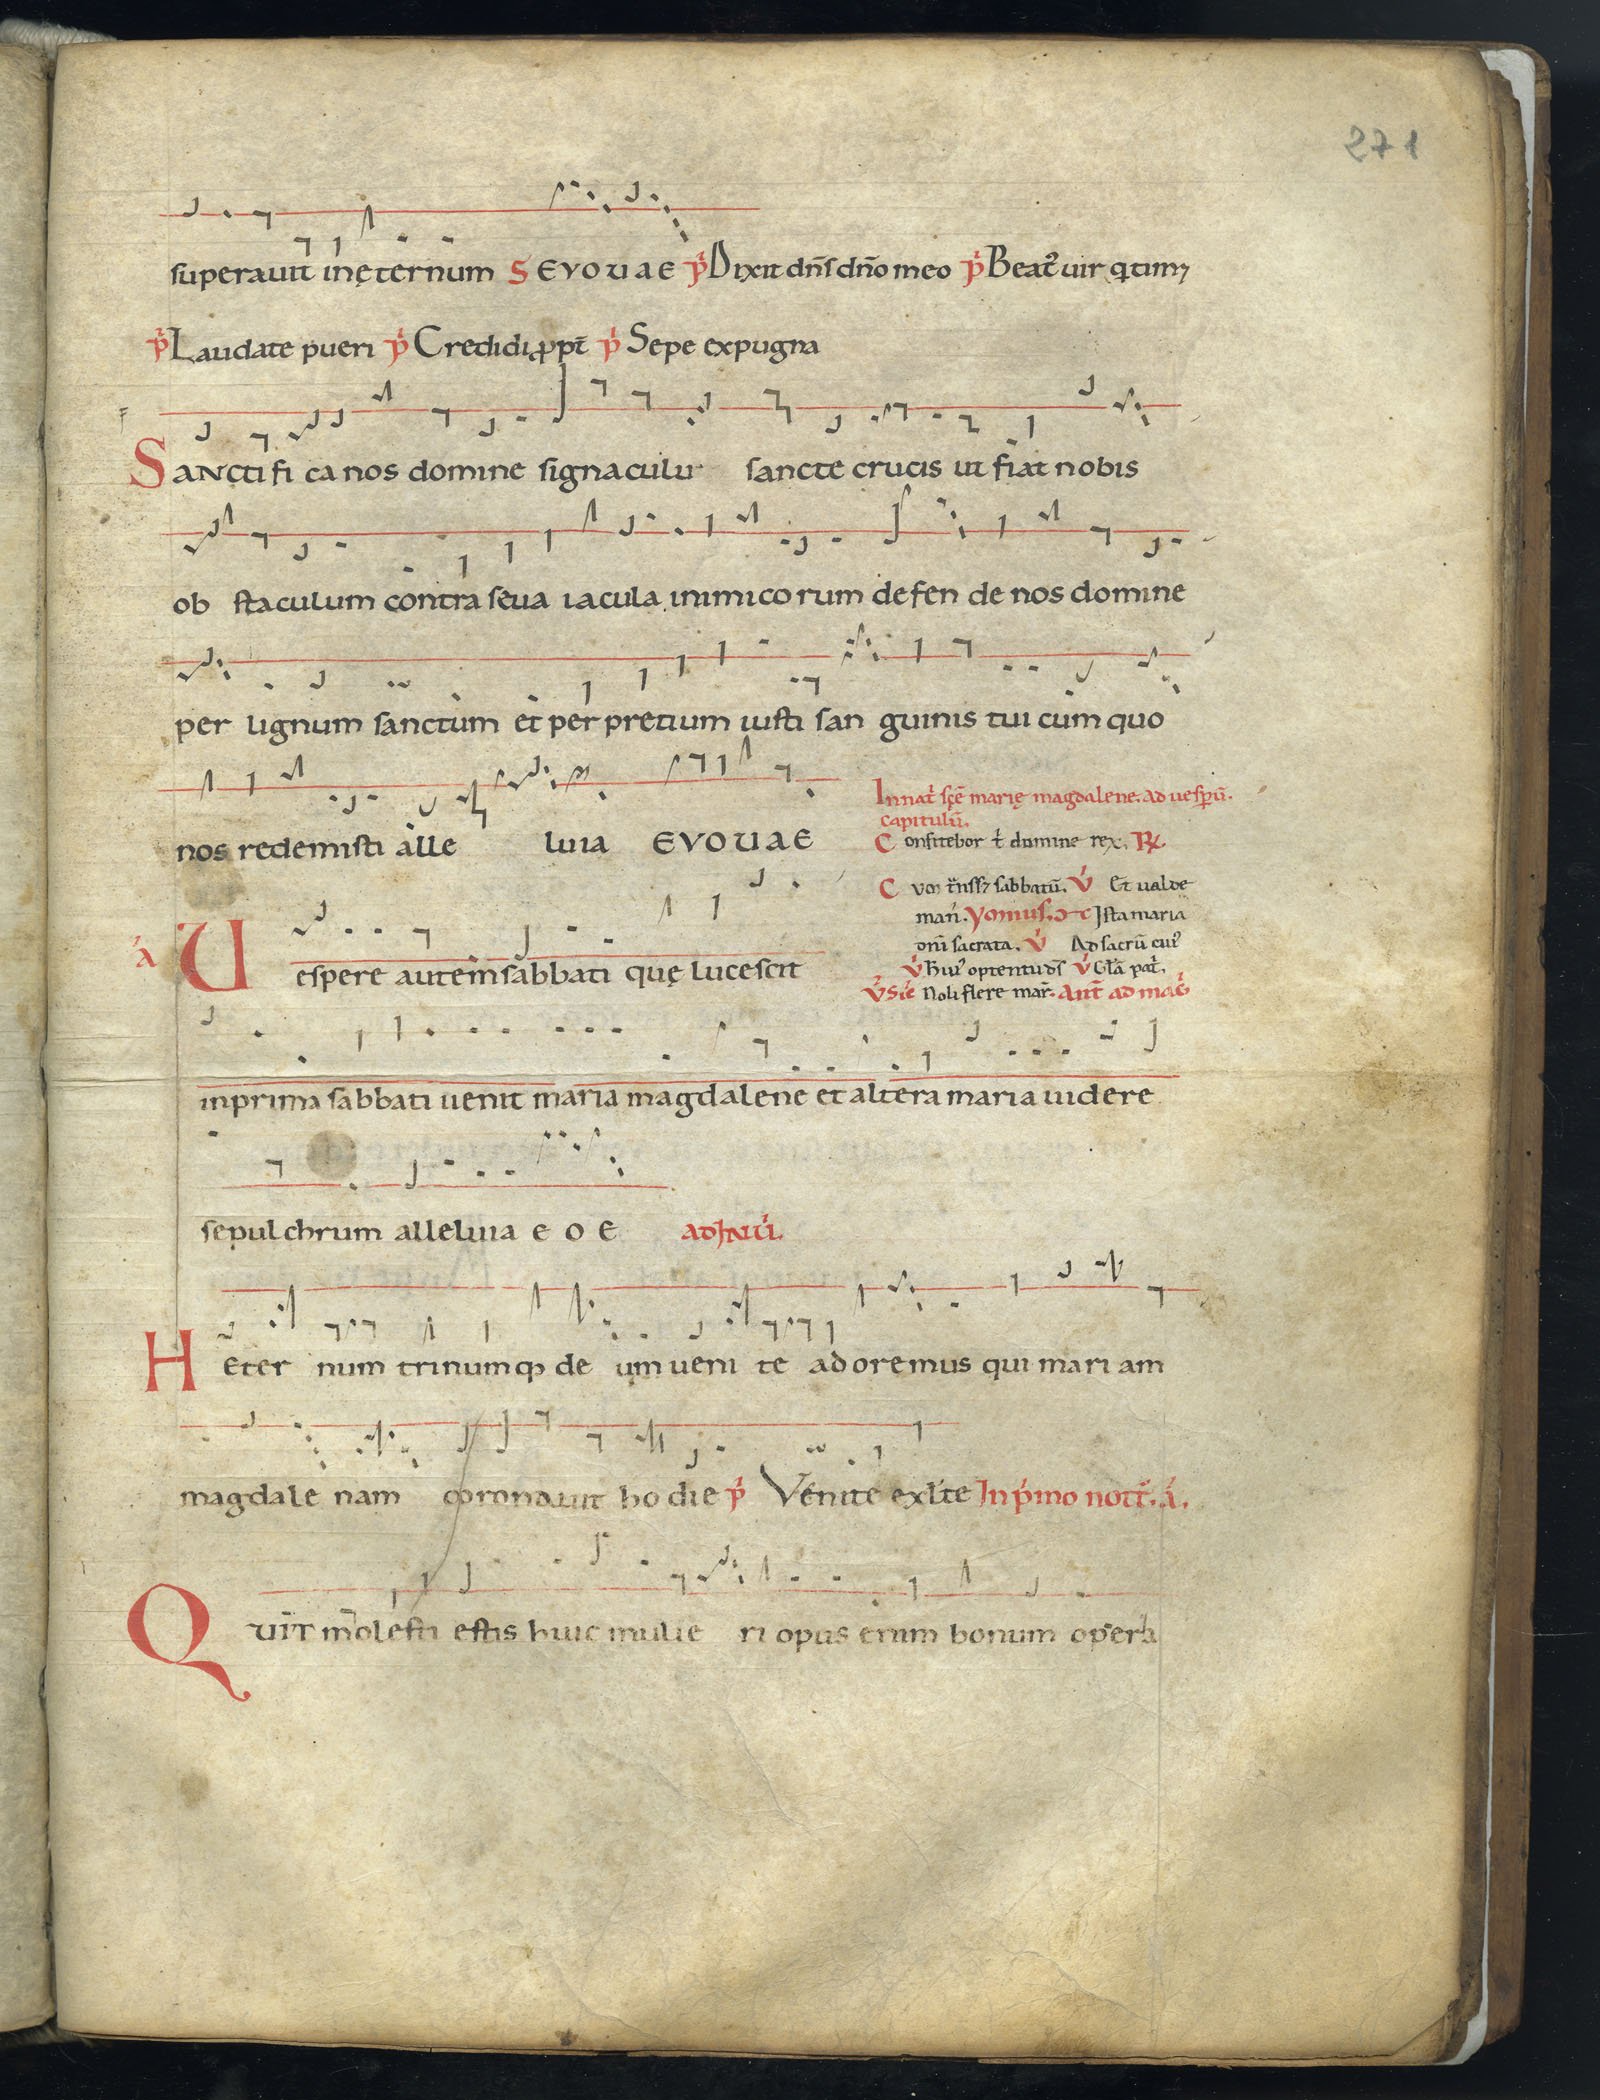 271
superauit inęternum S EVOUAE p̄ Dixit dn̄s dn̄o meo p̄ Beat' uir q timꝫ
p̄ Laudate pueri p̄ Credidi ꝓpt̄ p̄ Sepe expugna
Sanctifica nos domine signaculu sancte crucis ut fiat nobis
ob staculum contra seua iacula inimicorum defen de nos domine
per lignum sanctum et per pretium iusti san guinis tui cum quo
nos redemisti alle luia EVOUAE
In nat̄ sc̄ę marię magdalene. ad uesꝑū.
capitulū.
Confitebor t' dumine rex. ℟.
Cvm t̄nssꝫ sabbatū. ℣ Et ualde
man̄. Ymnus. Ista maria
om̄i sacrata. ℣ Ad sacrū cui'
℣ hui' optentu ds̄ ℣ Gl̄a pat̄.
Noli flere mar̄. Ant̄ ad maḡ
a Uespere autem sabbati quę lucescit
in prima sabbati uenit maria magdalene et altera maria uidere
sepulchrum alleluia e o e ad Inui.
Heter num trinumqꝫ de um ueni te adoremus qui mari am
magdale nam coronauit ho die p̄ Venite exl̄te In p'mo noct̄. a.
Quit molesti estis huic mulie ri opus enim bonum opera